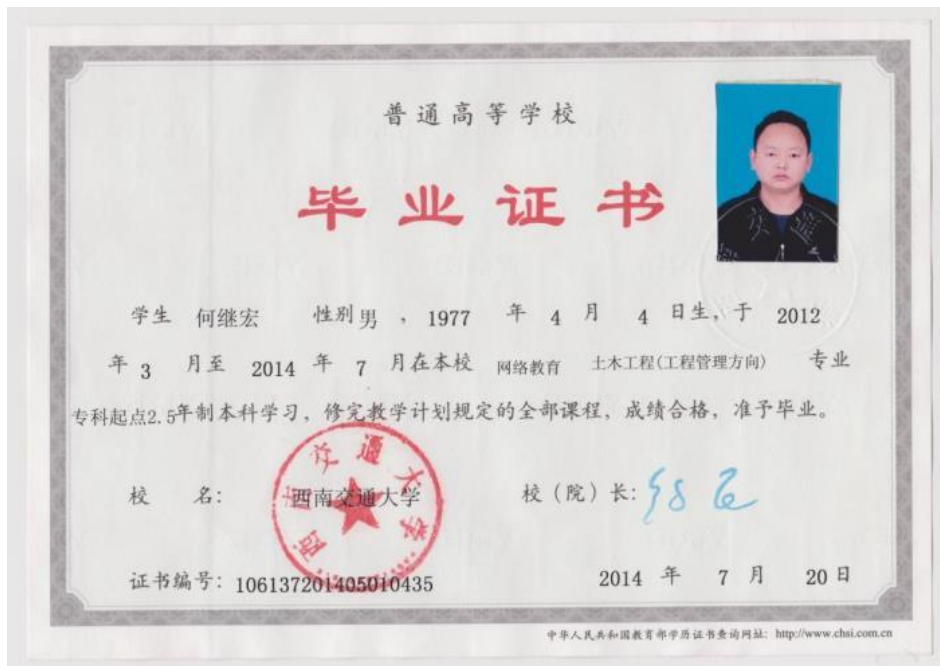 普通高等学校
毕业证书
学生 何继宏 性别男 ，1977 年 4 月 4 日生，于 2012
年 3 月至 2014 年 7 月在本校 网络教育 土木工程(工程管理方向) 专业
专科起点2.5年制本科学习，修完教学计划规定的全部课程，成绩合格，准予毕业。
校 名： 西南交通大学 校（院）长：
西南交通大学
证书编号：106137201405010435 2014 年 7 月 20日
中华人民共和国教育部学历证书查询网址：http://www.chsi.com.cn